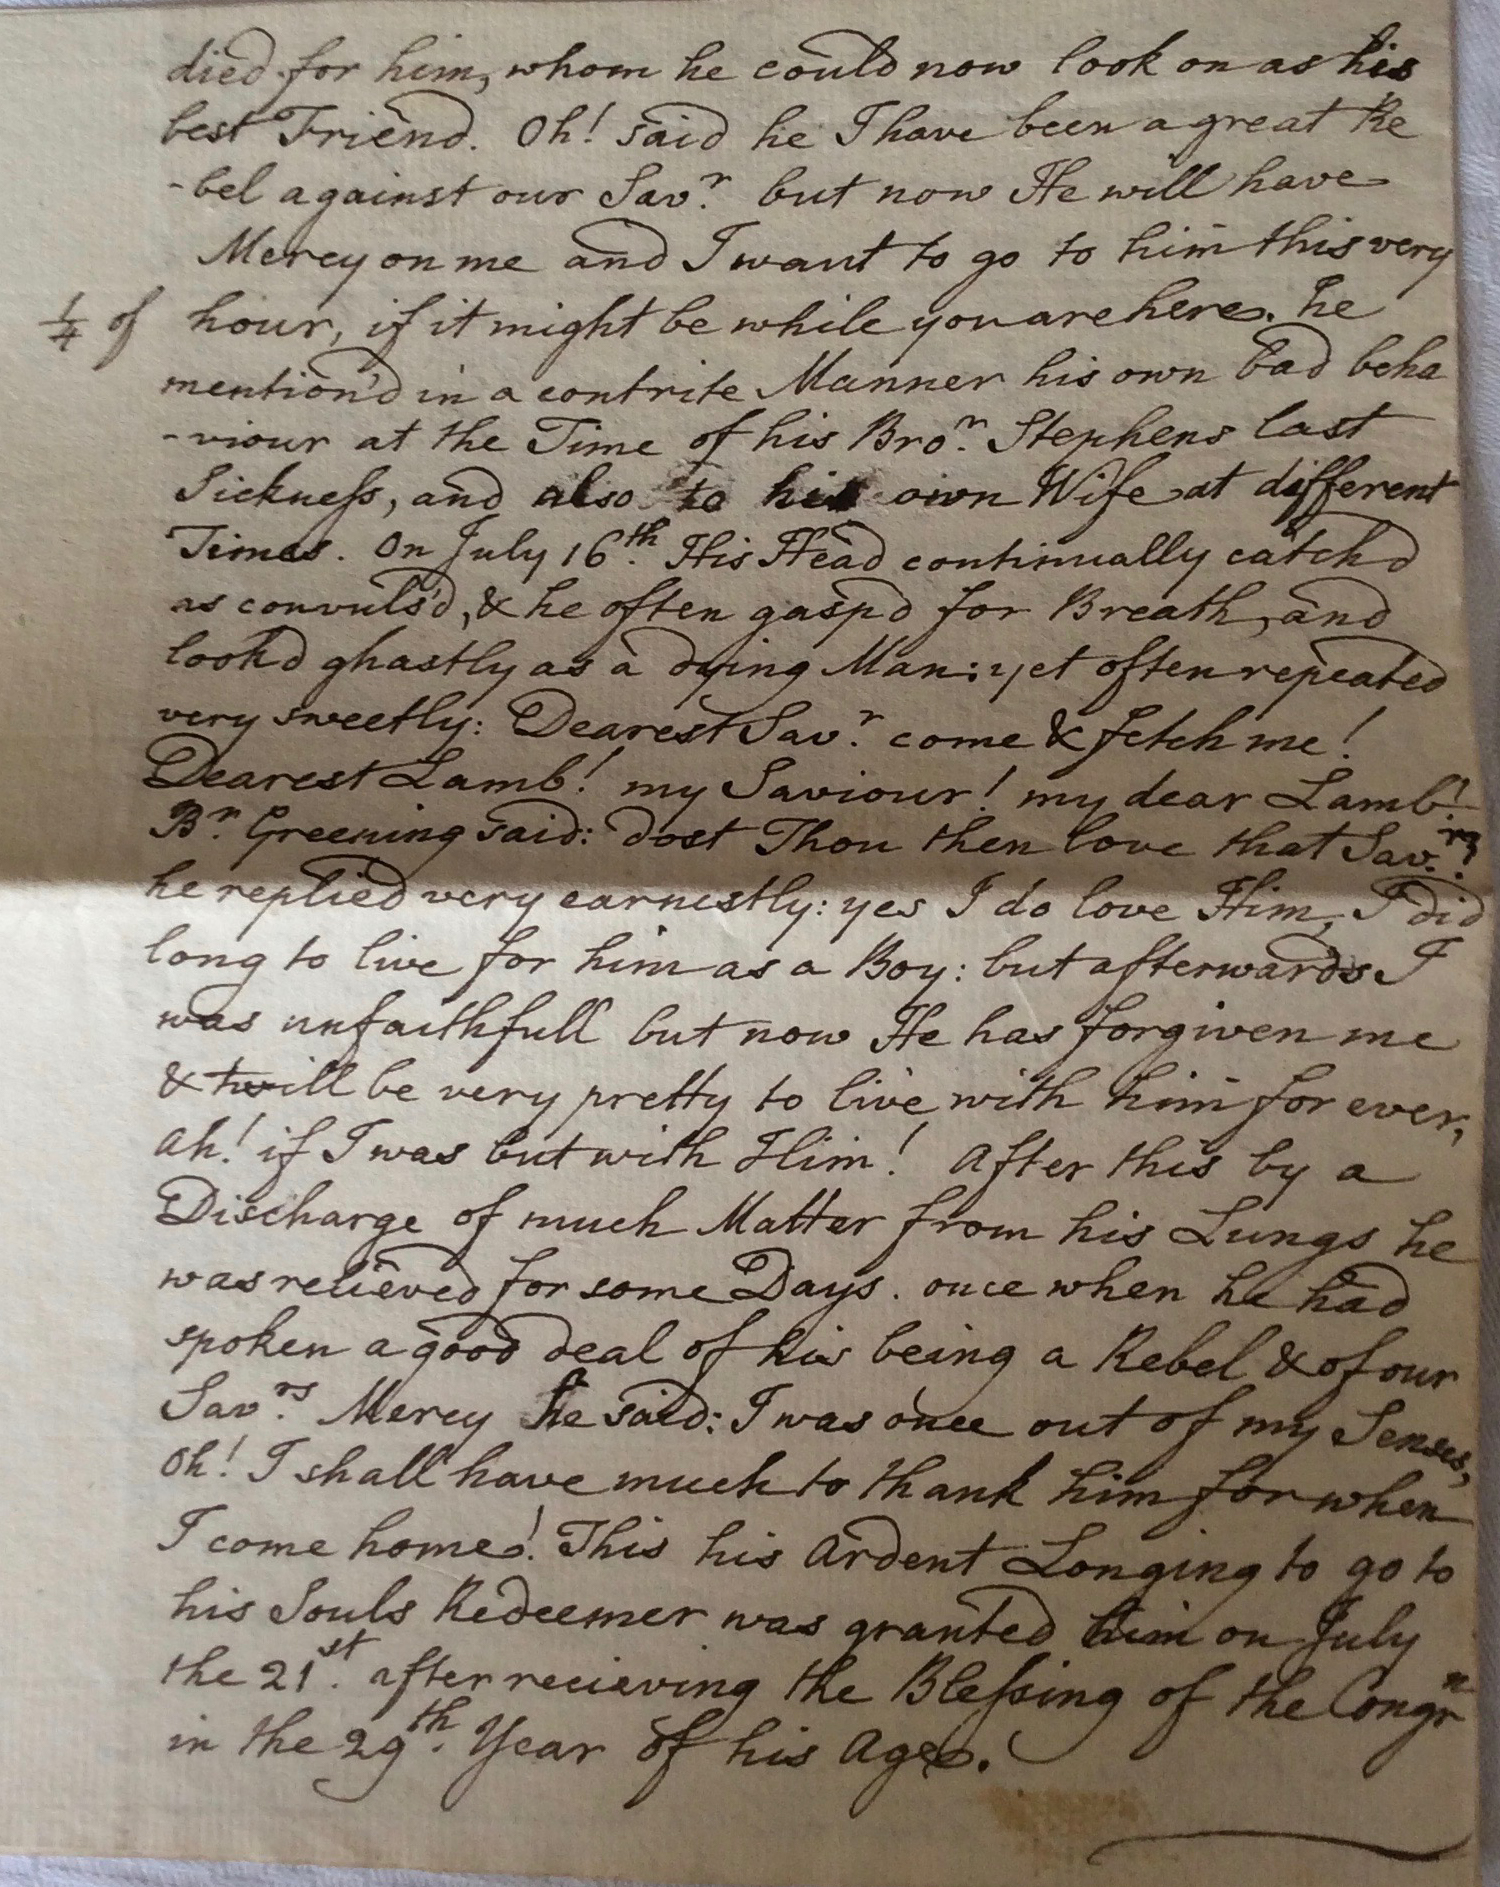 died for him, whom he could now look on as his
best Friend. Oh! said he I have been a great Re
-bel against our Savr. but now He will have
Mercy on me and I want to go to him this very
1/4 of hour, if it might be while you are here. he
mention'd in a contrite Manner his own bad beha
-viour at the Time of his Bror. Stephens last
Sickness, and also to his own Wife at different
Times. On July 16th. His Head continually catch'd
as convuls'd, & he often gasp'd for Breath, and
look'd ghastly as a dying Man: yet often repeated
very sweetly: Dearest Savr. come & fetch me!
Dearest Lamb! my Saviour! my dear Lamb!
Br. Greening said: dost Thou then love that Savr.?
he replied very earnestly: yes I do love Him, I did
long to live for him as a Boy: but afterwards I
was unfaithfull but now He has forgiven me
& twill be very pretty to live with him for ever,
ah! if I was but with Him! After this by a
Discharge of much Matter from his Lungs he
was relieved for some Days. once when he had
spoken a good deal of his being a Rebel & of our
Savrs. Mercy he said: I was once out of my Senses,
Oh! I shall have much to thank him for when
I come home! This his Ardent Longing to go to
his Souls Redeemer was granted him on July
the 21st. after recieving the Blessing of the Congn
in the 29th. Year of his Age.